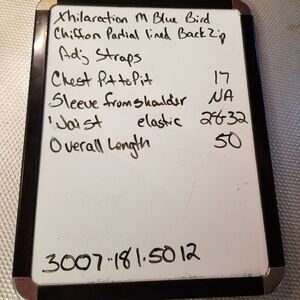 Xhilaration M Blue Bird
Chiffon Partial lined Back Zip
Adj Straps
Chest Pit to Pit 17
Sleeve from shoulder NA
Waist elastic 26-32
Overall Length 50
3007-181-5012